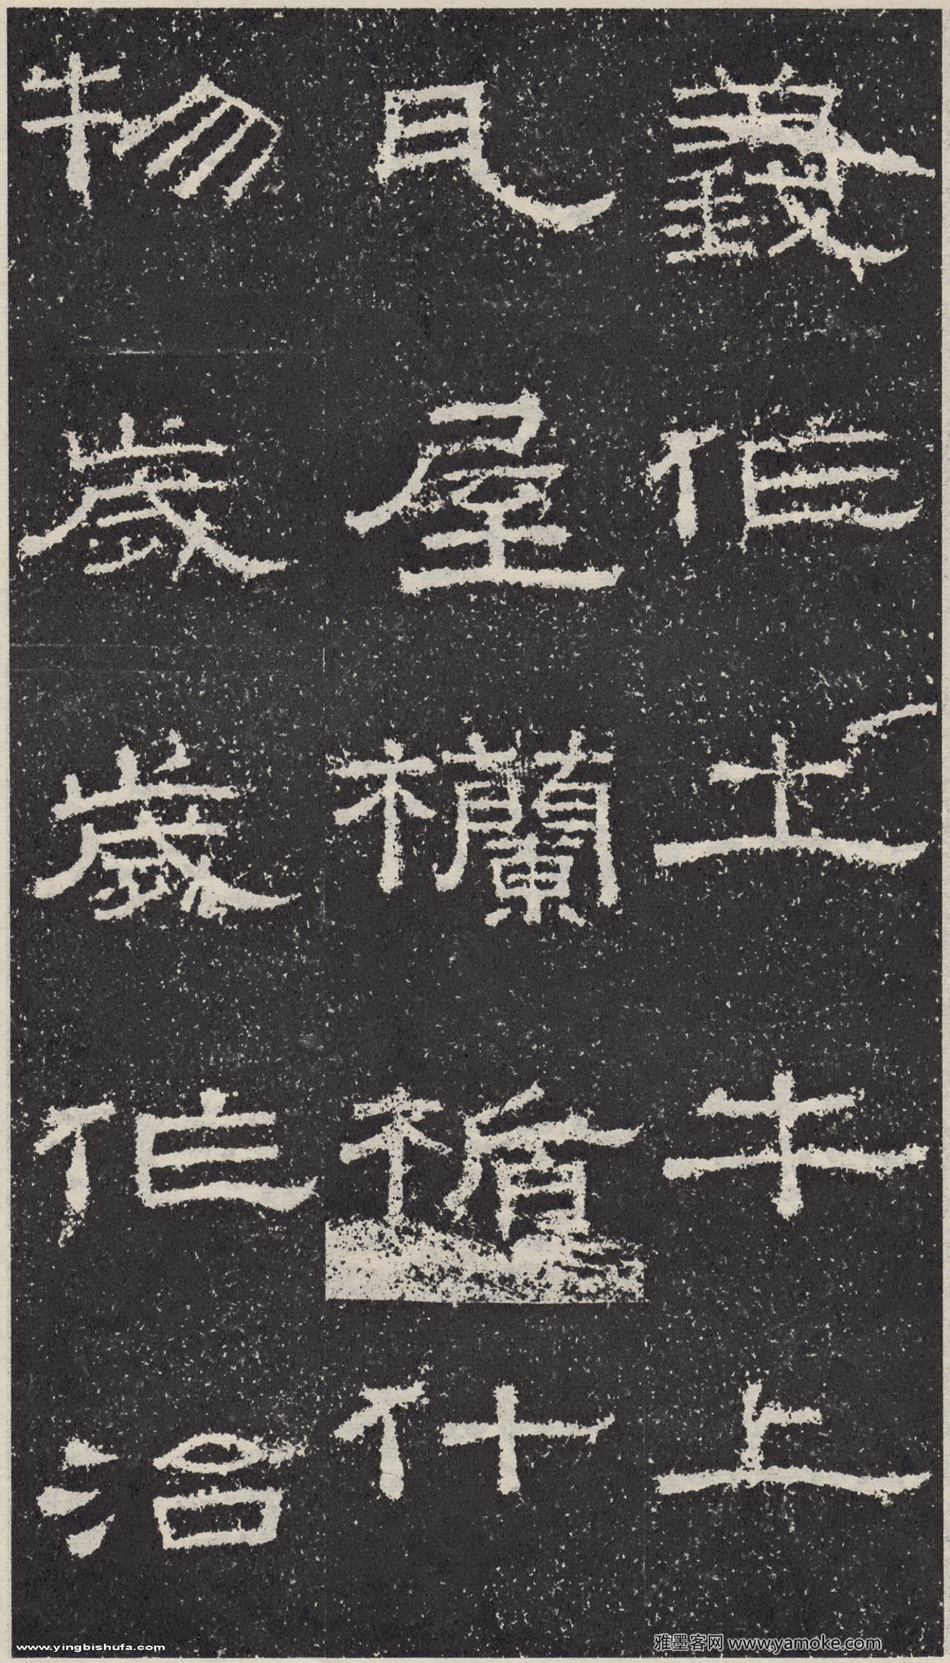 義作土牛上
瓦屋欄楯什
物歲歲作治
www.yingbishufa.com
雅墨客网 www.yamoke.com